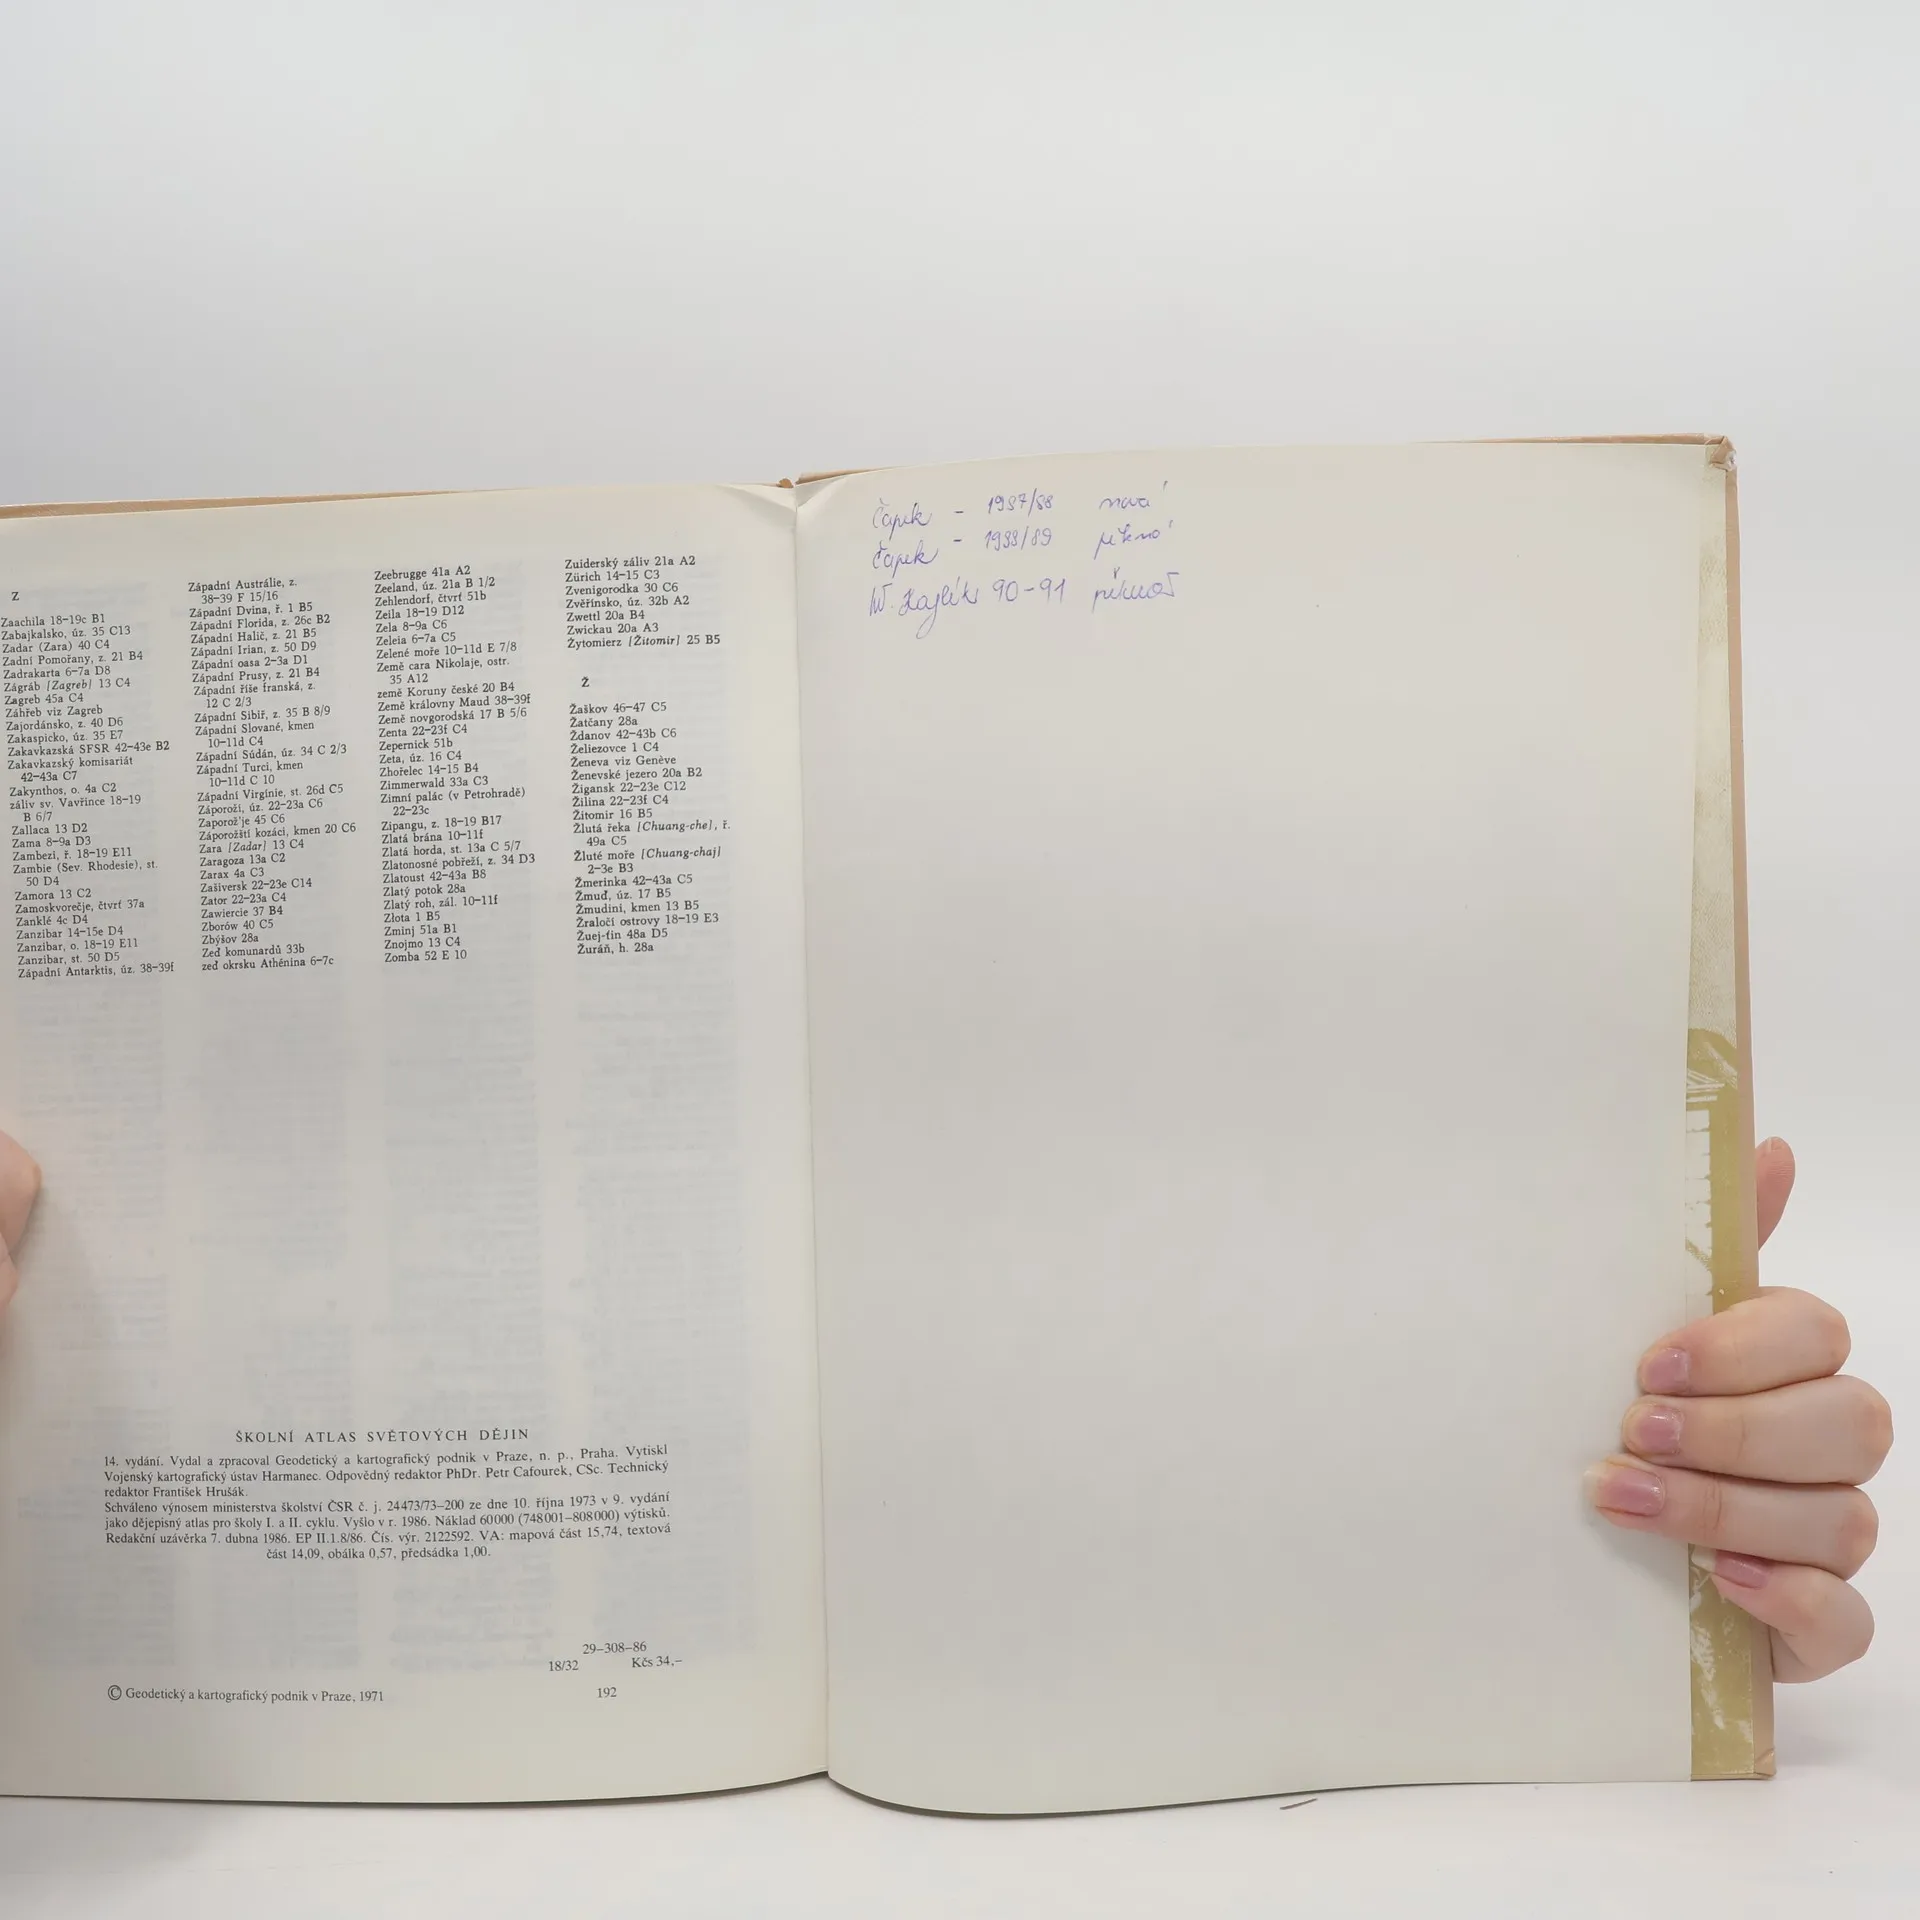 Z
Zaachila 18–19c B1
Zabajkalsko, úz. 35 C13
Zadar (Zara) 40 C4
Zadní Pomořany, z. 21 B4
Zadrakarta 6–7a D8
Zágráb [Zagreb] 13 C4
Zagreb 45a C4
Záhřeb viz Zagreb
Zajordánsko, z. 40 D6
Zakaspicko, úz. 35 E7
Zakavkazská SFSR 42–43e B2
Zakavkazský komisariát
42–43a C7
Zakynthos, o. 4a C2
záliv sv. Vavřince 18–19
B 6/7
Zallaca 13 D2
Zama 8–9a D3
Zambezi, ř. 18–19 E11
Zambie (Sev. Rhodesie), st.
50 D4
Zamora 13 C2
Zamoskvorečje, čtvrť 37a
Zanklé 4c D4
Zanzibar 14–15e D4
Zanzibar, o. 18–19 E11
Zanzibar, st. 50 D5
Západní Antarktis, úz. 38–39f
Západní Austrálie, z.
38–39 F 15/16
Západní Dvina, ř. 1 B5
Západní Florida, z. 26c B2
Západní Halič, z. 21 B5
Západní Irian, z. 50 D9
Západní oasa 2–3a D1
Západní Prusy, z. 21 B4
Západní říše franská, z.
12 C 2/3
Západní Sibiř, z. 35 B 8/9
Západní Slované, kmen
10–11d C4
Západní Súdán, úz. 34 C 2/3
Západní Turci, kmen
10–11d C 10
Západní Virgínie, st. 26d C5
Záporoží, úz. 22–23a C6
Zaporož'je 45 C6
Záporožští kozáci, kmen 20 C6
Zara [Zadar] 13 C4
Zaragoza 13a C2
Zarax 4a C3
Zašiversk 22–23e C14
Zator 22–23a C4
Zawiercie 37 B4
Zborów 40 C5
Zbýšov 28a
Zeď komunardů 33b
zeď okrsku Athénina 6–7c
Zeebrugge 41a A2
Zeeland, úz. 21a B 1/2
Zehlendorf, čtvrť 51b
Zeila 18–19 D12
Zela 8–9a C6
Zeleia 6–7a C5
Zelené moře 10–11d E 7/8
Země cara Nikolaje, ostr.
35 A12
země Koruny české 20 B4
Země královny Maud 38–39f
Země novgorodská 17 B 5/6
Zenta 22–23f C4
Zepernick 51b
Zeta, úz. 16 C4
Zhořelec 14–15 B4
Zimmerwald 33a C3
Zimní palác (v Petrohradě)
22–23c
Zipangu, z. 18–19 B17
Zlatá brána 10–11f
Zlatá horda, st. 13a C 5/7
Zlatonosné pobřeží, z. 34 D3
Zlatoust 42–43a B8
Zlatý potok 28a
Zlatý roh, zál. 10–11f
Złota 1 B5
Zminj 51a B1
Znojmo 13 C4
Zomba 52 E 10
Zuiderský záliv 21a A2
Zürich 14–15 C3
Zvenigorodka 30 C6
Zvěřínsko, úz. 32b A2
Zwettl 20a B4
Zwickau 20a A3
Żytomierz [Žitomir] 25 B5
Ž
Žaškov 46–47 C5
Žatčany 28a
Ždanov 42–43b C6
Želiezovce 1 C4
Ženeva viz Genève
Ženevské jezero 20a B2
Žigansk 22–23e C12
Žilina 22–23f C4
Žitomir 16 B5
Žlutá řeka [Chuang-che], ř.
49a C5
Žluté moře [Chuang-chaj]
2–3e B3
Žmerinka 42–43a C5
Žmuď, úz. 17 B5
Žmudíni, kmen 13 B5
Žraločí ostrovy 18–19 E3
Žuej-ťin 48a D5
Žuráň, h. 28a
ŠKOLNÍ ATLAS SVĚTOVÝCH DĚJIN
14. vydání. Vydal a zpracoval Geodetický a kartografický podnik v Praze, n. p., Praha. Vytiskl
Vojenský kartografický ústav Harmanec. Odpovědný redaktor PhDr. Petr Cafourek, CSc. Technický
redaktor František Hrušák.
Schváleno výnosem ministerstva školství ČSR č. j. 24473/73–200 ze dne 10. října 1973 v 9. vydání
jako dějepisný atlas pro školy I. a II. cyklu. Vyšlo v r. 1986. Náklad 60000 (748001–808000) výtisků.
Redakční uzávěrka 7. dubna 1986. EP II.1.8/86. Čís. výr. 2122592. VA: mapová část 15,74, textová
část 14,09, obálka 0,57, předsádka 1,00.
29–308–86
18/32 Kčs 34,–
© Geodetický a kartografický podnik v Praze, 1971
192
Čapek – 1987/88 nová
Čapek – 1988/89 pěkná
90–91